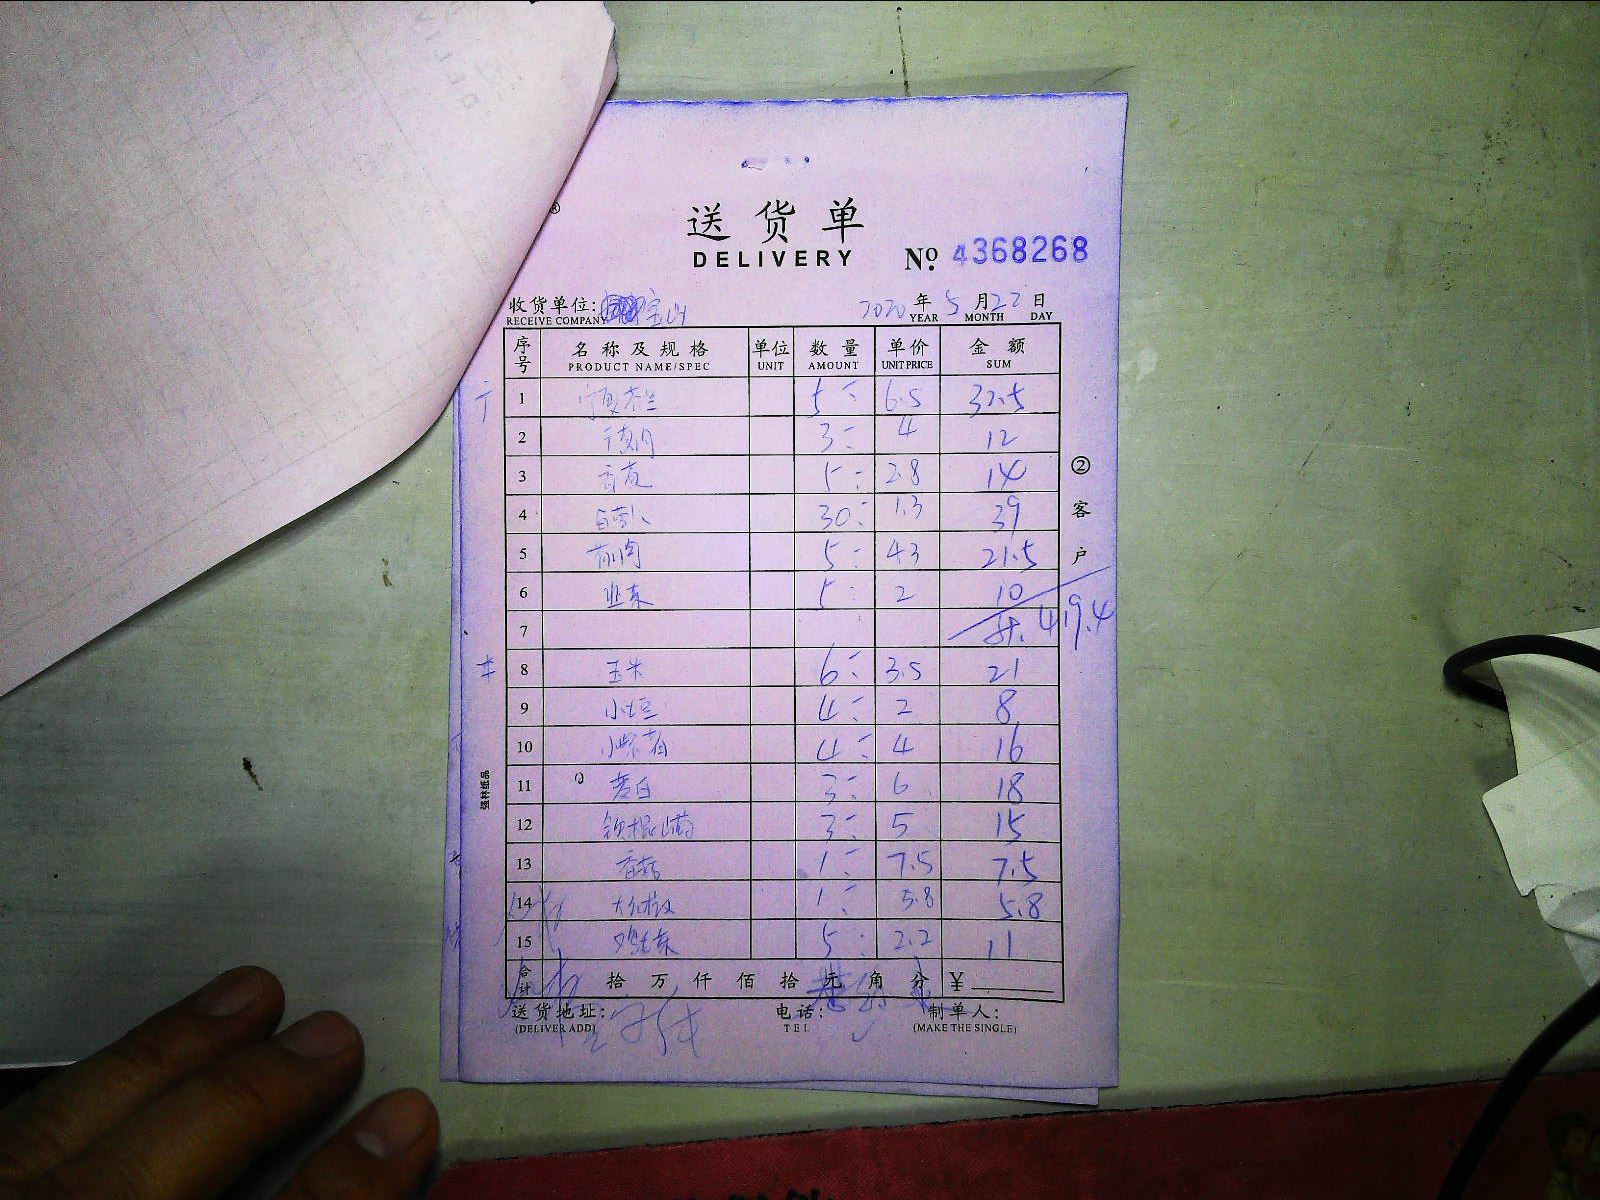 送货单
DELIVERY No. 4368268
收货单位: 宝山 2020 年 5 月 22 日
RECEIVE COMPANY YEAR MONTH DAY
序号 名称及规格 单位 数量 单价 金额
PRODUCT NAME/SPEC UNIT AMOUNT UNIT PRICE SUM
1 5 6.5 32.5
2 3 4 12
3 5 2.8 14
4 30 1.3 39
5 5 4.3 21.5
6 韭菜 5 2 10
7 419.4
8 玉米 6 3.5 21
9 小土豆 4 2 8
10 小紫薯 4 4 16
11 茭白 3 6 18
12 铁棍山药 3 5 15
13 香菇 1 7.5 7.5
14 1 5.8 5.8
15 5 2.2 11
合计 拾 万 仟 佰 拾 元 角 分 ¥
送货地址: 电话: 制单人:
(DELIVER ADD) TEL (MAKE THE SINGLE)
② 客户
强林纸品